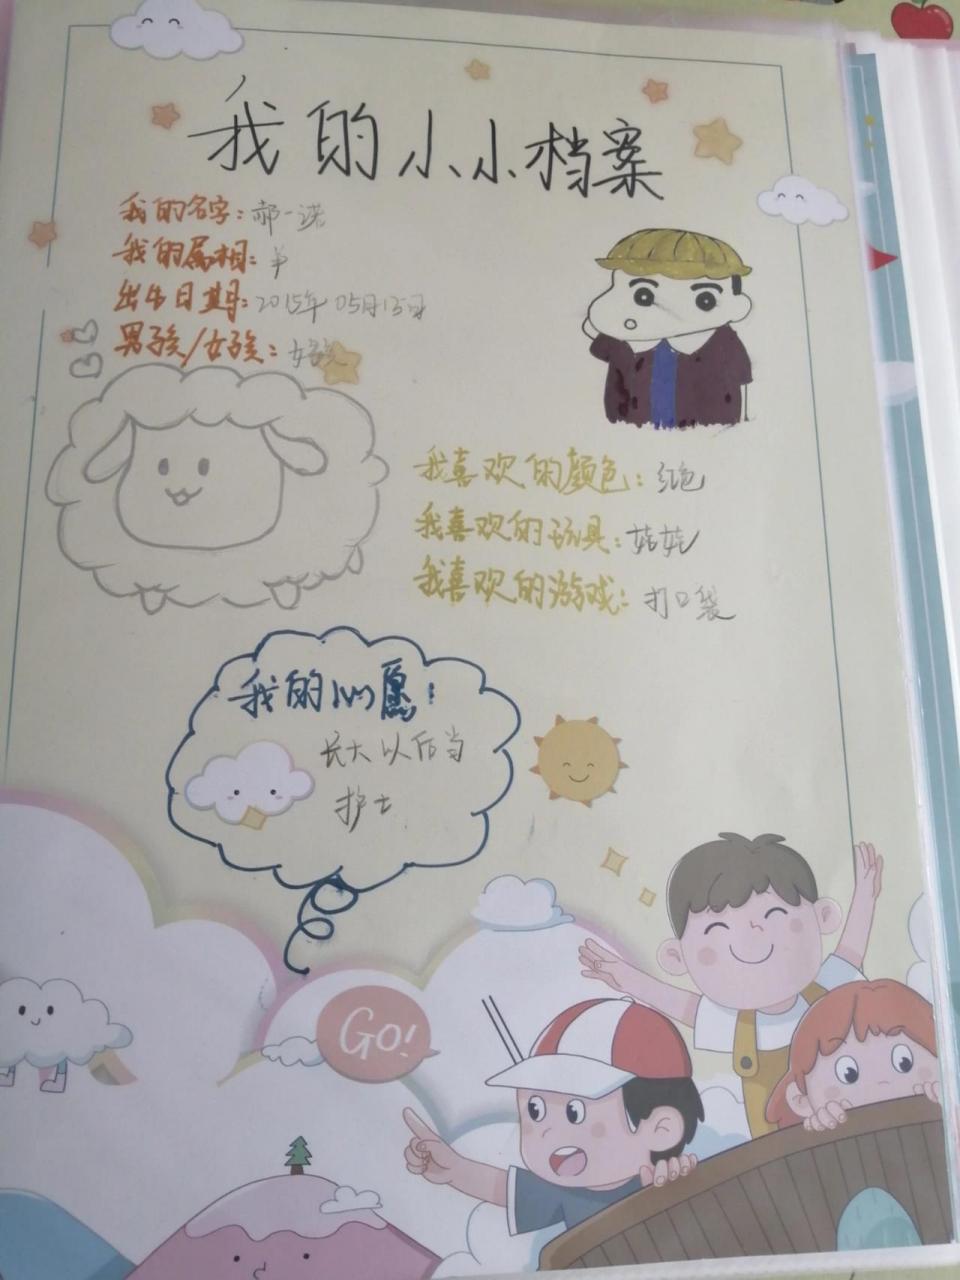 我的小小档案
我的名字:郝一诺
我的属相:羊
出生日期:2015年05月13日
男孩/女孩:女孩
我喜欢的颜色:红色
我喜欢的玩具:娃娃
我喜欢的游戏:打口袋
我的心愿:
长大以后当
护士
Go!